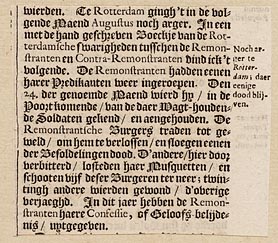 wierden. Te Rotterdam gingh't in de vol-
gende Maend Augustus noch arger. In een
met de hand geschreven Boeckje van de Rot-
terdamsche swarigheden tusschen de Remon-
stranten en Contra-Remonstranten vind ick 't
volgende. De Remonstranten hadden eenen
haer Predikanten weer ingeroepen. Den
24. der genoemde Maend wierd hy / in de
Poort komende / van de daer Wagt-houden-
de Soldaten gekend / en aengehouden. De
Remonstrantsche Burgers traden tot ge-
weld / om hem te verlossen / en sloegen eenen
der Besoldelingen dood. D'andere / hier door
verbitterd / losteden haer Musquetten / en
schooten vijf deser Burgeren ter neer: twin-
tingh andere wierden gewond / d'overige
verjaeghd. In dit jaer hebben de Remon-
stranten haere Confessie, of Geloofs-belijde-
nis / uytgegeven.
Noch ar-
ger te
Rotter-
dam; daer
eenige
dood blij-
ven.